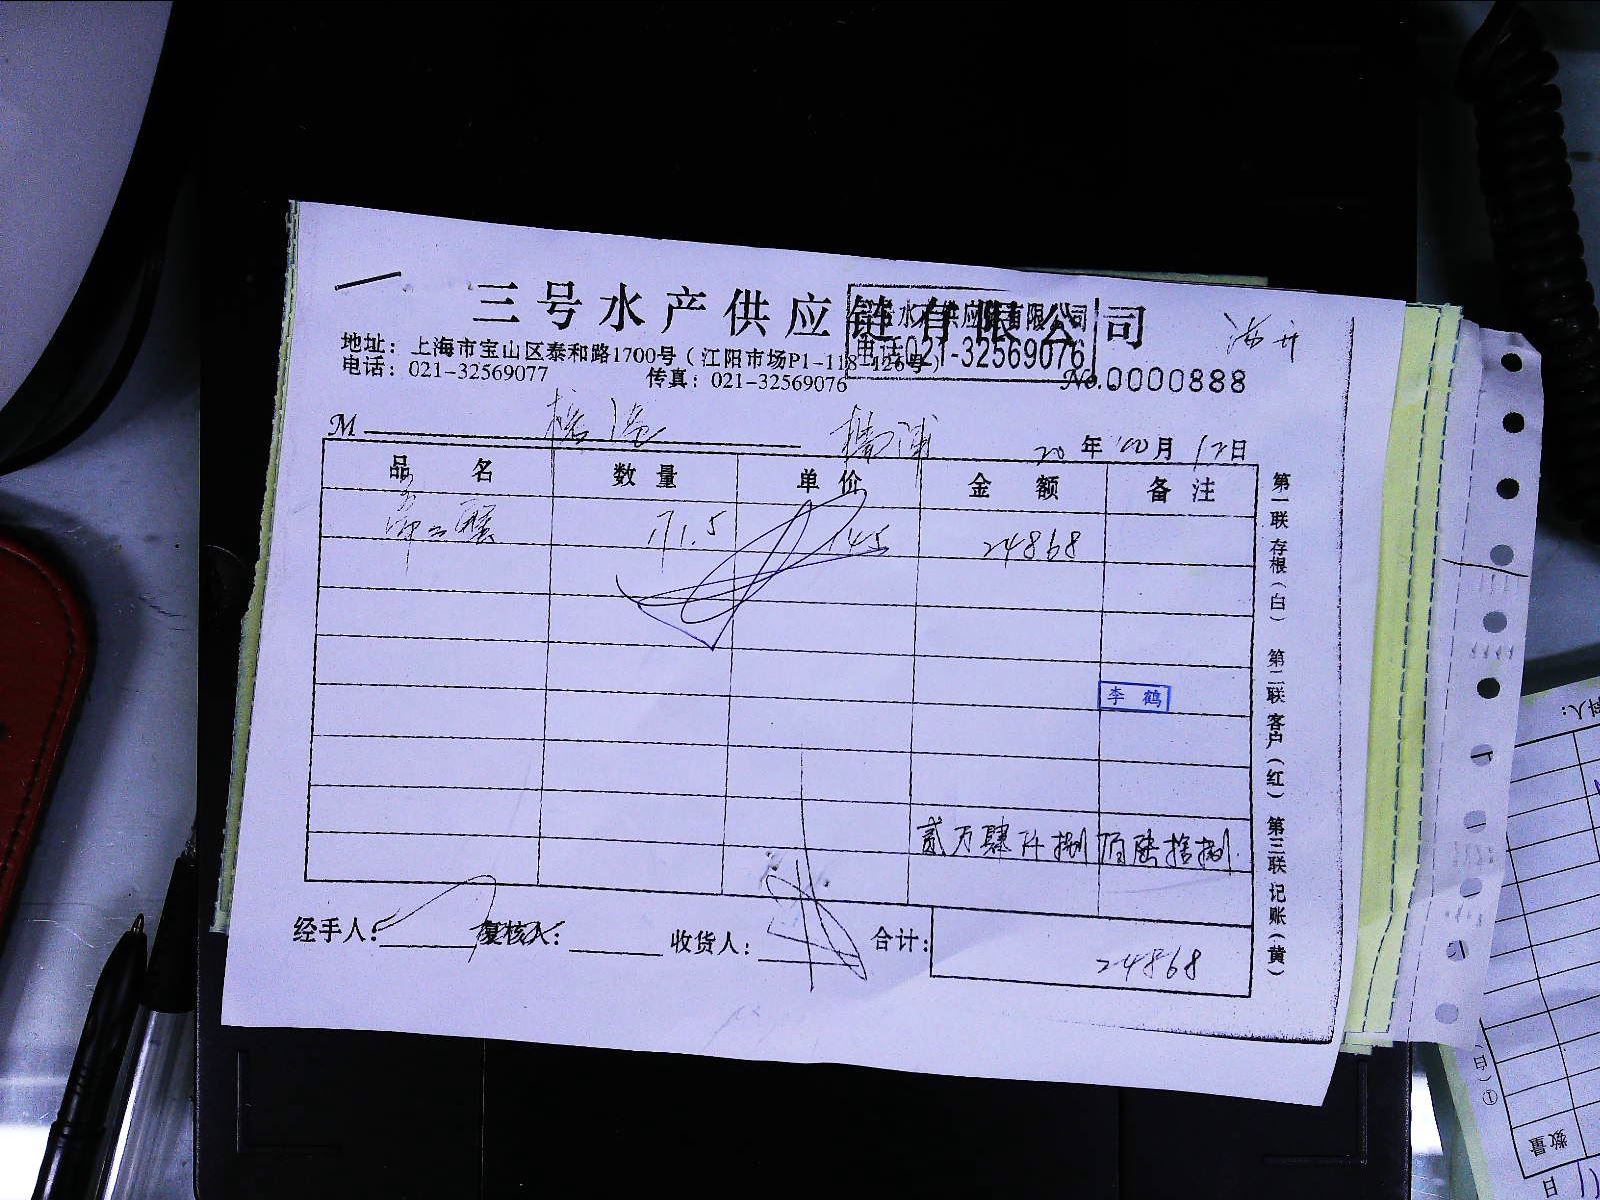 三号水产供应链有限公司
水产供应链有限公司
电话021-32569076
地址：上海市宝山区泰和路1700号（江阳市场P1-118-126号）
电话：021-32569077 传真：021-32569076
No.0000888
M 杨浦 20年10月12日
品名 数量 单价 金额 备注
171.5 145 24868
李鹤
贰万肆仟捌佰陆拾捌
经手人： 复核人： 收货人： 合计： 24868
第一联存根（白） 第二联客户（红） 第三联记账（黄）
数量